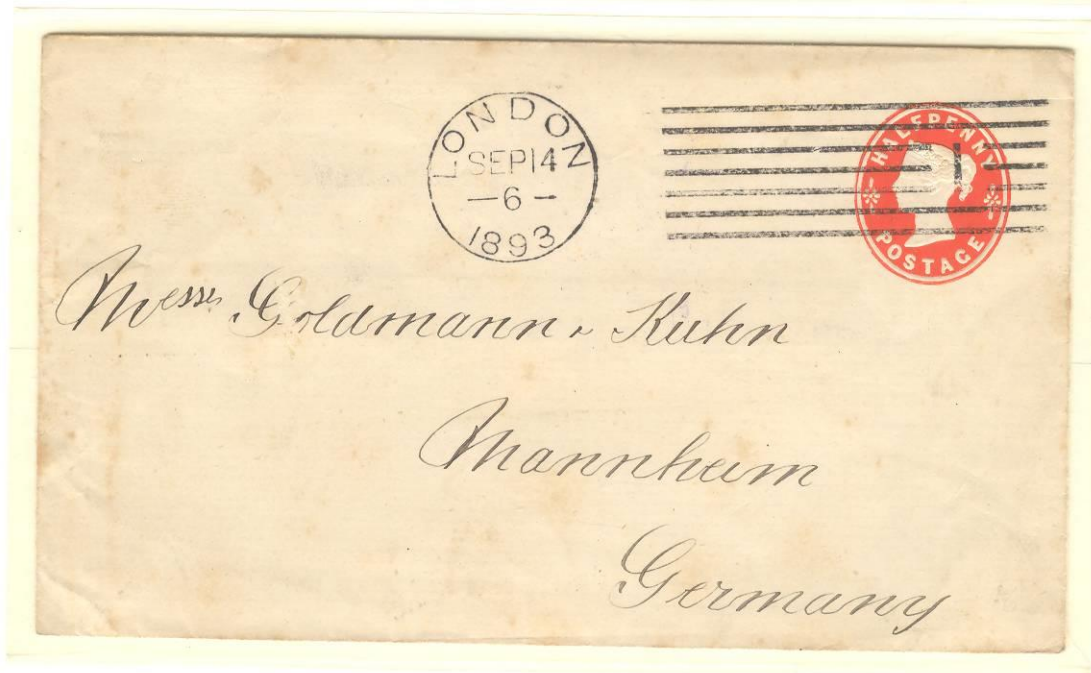 LONDON
SEP 14
— 6 —
1893
HALFPENNY
1
POSTAGE
Messrs Goldmann & Kuhn
Mannheim
Germany